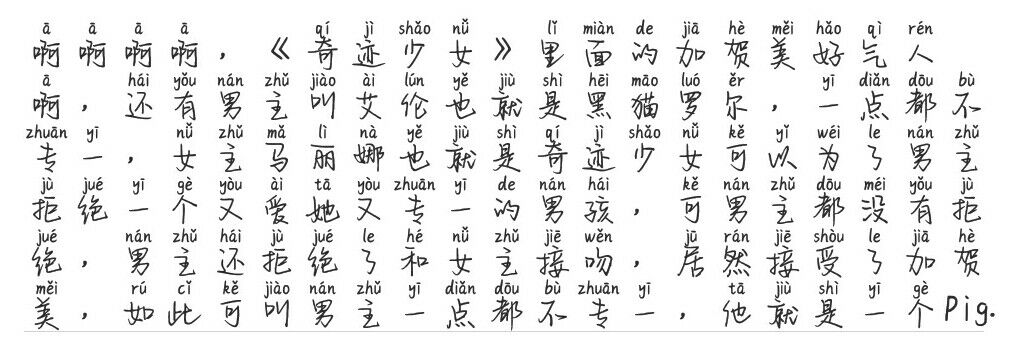 ā ā ā ā qí jì shǎo nǚ lǐ miàn de jiā hè měi hǎo qì rén
啊啊啊啊，《奇迹少女》里面的加贺美好气人
ā hái yǒu nán zhǔ jiào ài lún yě jiù shì hēi māo luó ěr yī diǎn dōu bù
啊，还有男主叫艾伦也就是黑猫罗尔，一点都不
zhuān yī nǚ zhǔ mǎ lì nà yě jiù shì qí jì shǎo nǚ kě yǐ wéi le nán zhǔ
专一，女主马丽娜也就是奇迹少女可以为了男主
jù jué yī gè yòu ài tā yòu zhuān yī de nán hái kě nán zhǔ dōu méi yǒu jù
拒绝一个又爱她又专一的男孩，可男主都没有拒
jué nán zhǔ hái jù jué le hé nǚ zhǔ jiē wěn jū rán jiē shòu le jiā hè
绝，男主还拒绝了和女主接吻，居然接受了加贺
měi rú cǐ kě jiào nán zhǔ yī diǎn dōu bù zhuān yī tā jiù shì yī gè
美，如此可叫男主一点都不专一，他就是一个Pig.